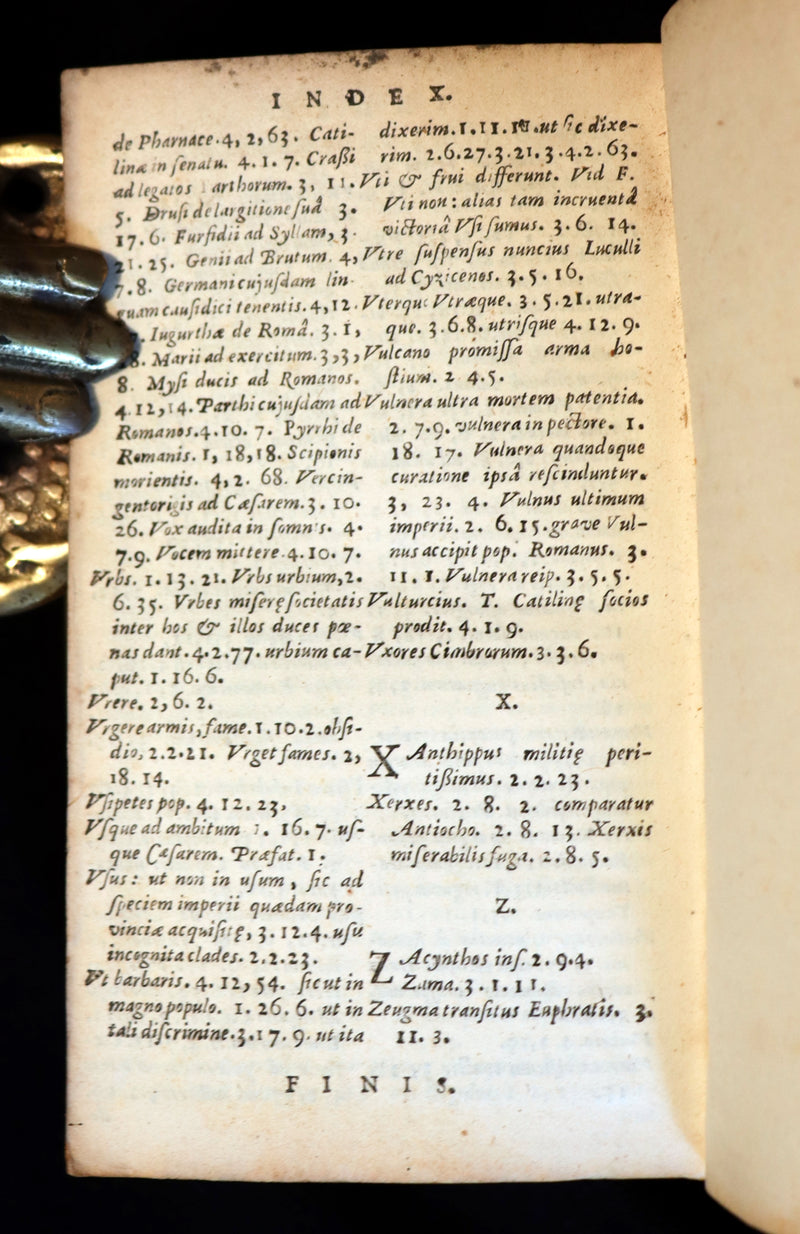 INDEX.
de Pharnace. 4, 2, 63. Cati-
linæ in senatu. 4. 1. 7. Crassi
ad legatos arthorum. 3, 11.
5. Drusi de largitione suâ 3.
17. 6. Furfidii ad Syllam, 3.
21. 25. Genii ad Brutum. 4,
7. 8. Germani cujusdam lin-
guam causidici tenentis. 4, 12.
Iugurthæ de Româ. 3. 1,
18. Marii ad exercitum. 3, 3,
8. Mysi ducis ad Romanos.
4. 12, 14. Parthi cujusdam ad
Romanos. 4. 10. 7. Pyrrhi de
Romanis. 1, 18, 18. Scipionis
morientis. 4, 2. 68. Vercin-
gentorigis ad Cæsarem. 3. 10.
26. Vox audita in somnis. 4.
7. 9. Vocem mittere. 4. 10. 7.
Vrbs. 1. 13. 21. Vrbs urbium, 2.
6. 35. Vrbes miserę societatis
inter hos & illos duces pœ-
nas dant. 4. 2. 77. urbium ca-
put. 1. 16. 6.
Vrere. 2, 6. 2.
Vrgere armis, fame. 1. 10. 2. obsi-
dio, 2. 2. 21. Vrget fames. 2,
18. 14.
Vsipetes pop. 4. 12. 23,
Vsque ad ambitum 1. 16. 7. us-
que Cæsarem. Præfat. 1.
Vsus: ut non in usum, sic ad
speciem imperii quædam pro-
vinciæ acquisitę, 3. 12. 4. usu
incognita clades. 2. 2. 23.
Vt barbaris. 4. 12, 54. sicut in
magno populo. 1. 26. 6. ut in
tali discrimine. 3. 17. 9. ut ita
dixerim. 1. 11. ut sic dixe-
rim. 2. 6. 27. 3. 21. 3. 4. 2. 63.
Vti & frui differunt. Vid F.
Vti non: alias tam incruentâ
victoriâ Vsi sumus. 3. 6. 14.
Vtre suspensus nuncius Luculli
ad Cyzicenos. 3. 5. 16.
Vterque Vtræque. 3. 5. 21. utra-
que. 3. 6. 8. utrisque 4. 12. 9.
Vulcano promissa arma ho-
stium. 2 4. 5.
Vulnera ultra mortem patentia.
2. 7. 9. vulnera in pectore. 1.
18. 17. Vulnera quandoque
curatione ipsâ rescinduntur.
3, 23. 4. Vulnus ultimum
imperii. 2. 6. 15. grave Vul-
nus accipit pop. Romanus. 3.
11. 1. Vulnera reip. 3. 5. 5.
Vulturcius. T. Catilinę socios
prodit. 4. 1. 9.
Vxores Cimbrorum. 3. 3. 6.
X.
XAnthippus militię peri-
tissimus. 2. 2. 23.
Xerxes. 2. 8. 2. comparatur
Antiocho. 2. 8. 13. Xerxis
miserabilis fuga. 2. 8. 5.
Z.
ZAcynthos ins. 2. 9. 4.
Zama. 3. 1. 11.
Zeugma transitus Euphratis. 3.
11. 3.
FINIS.